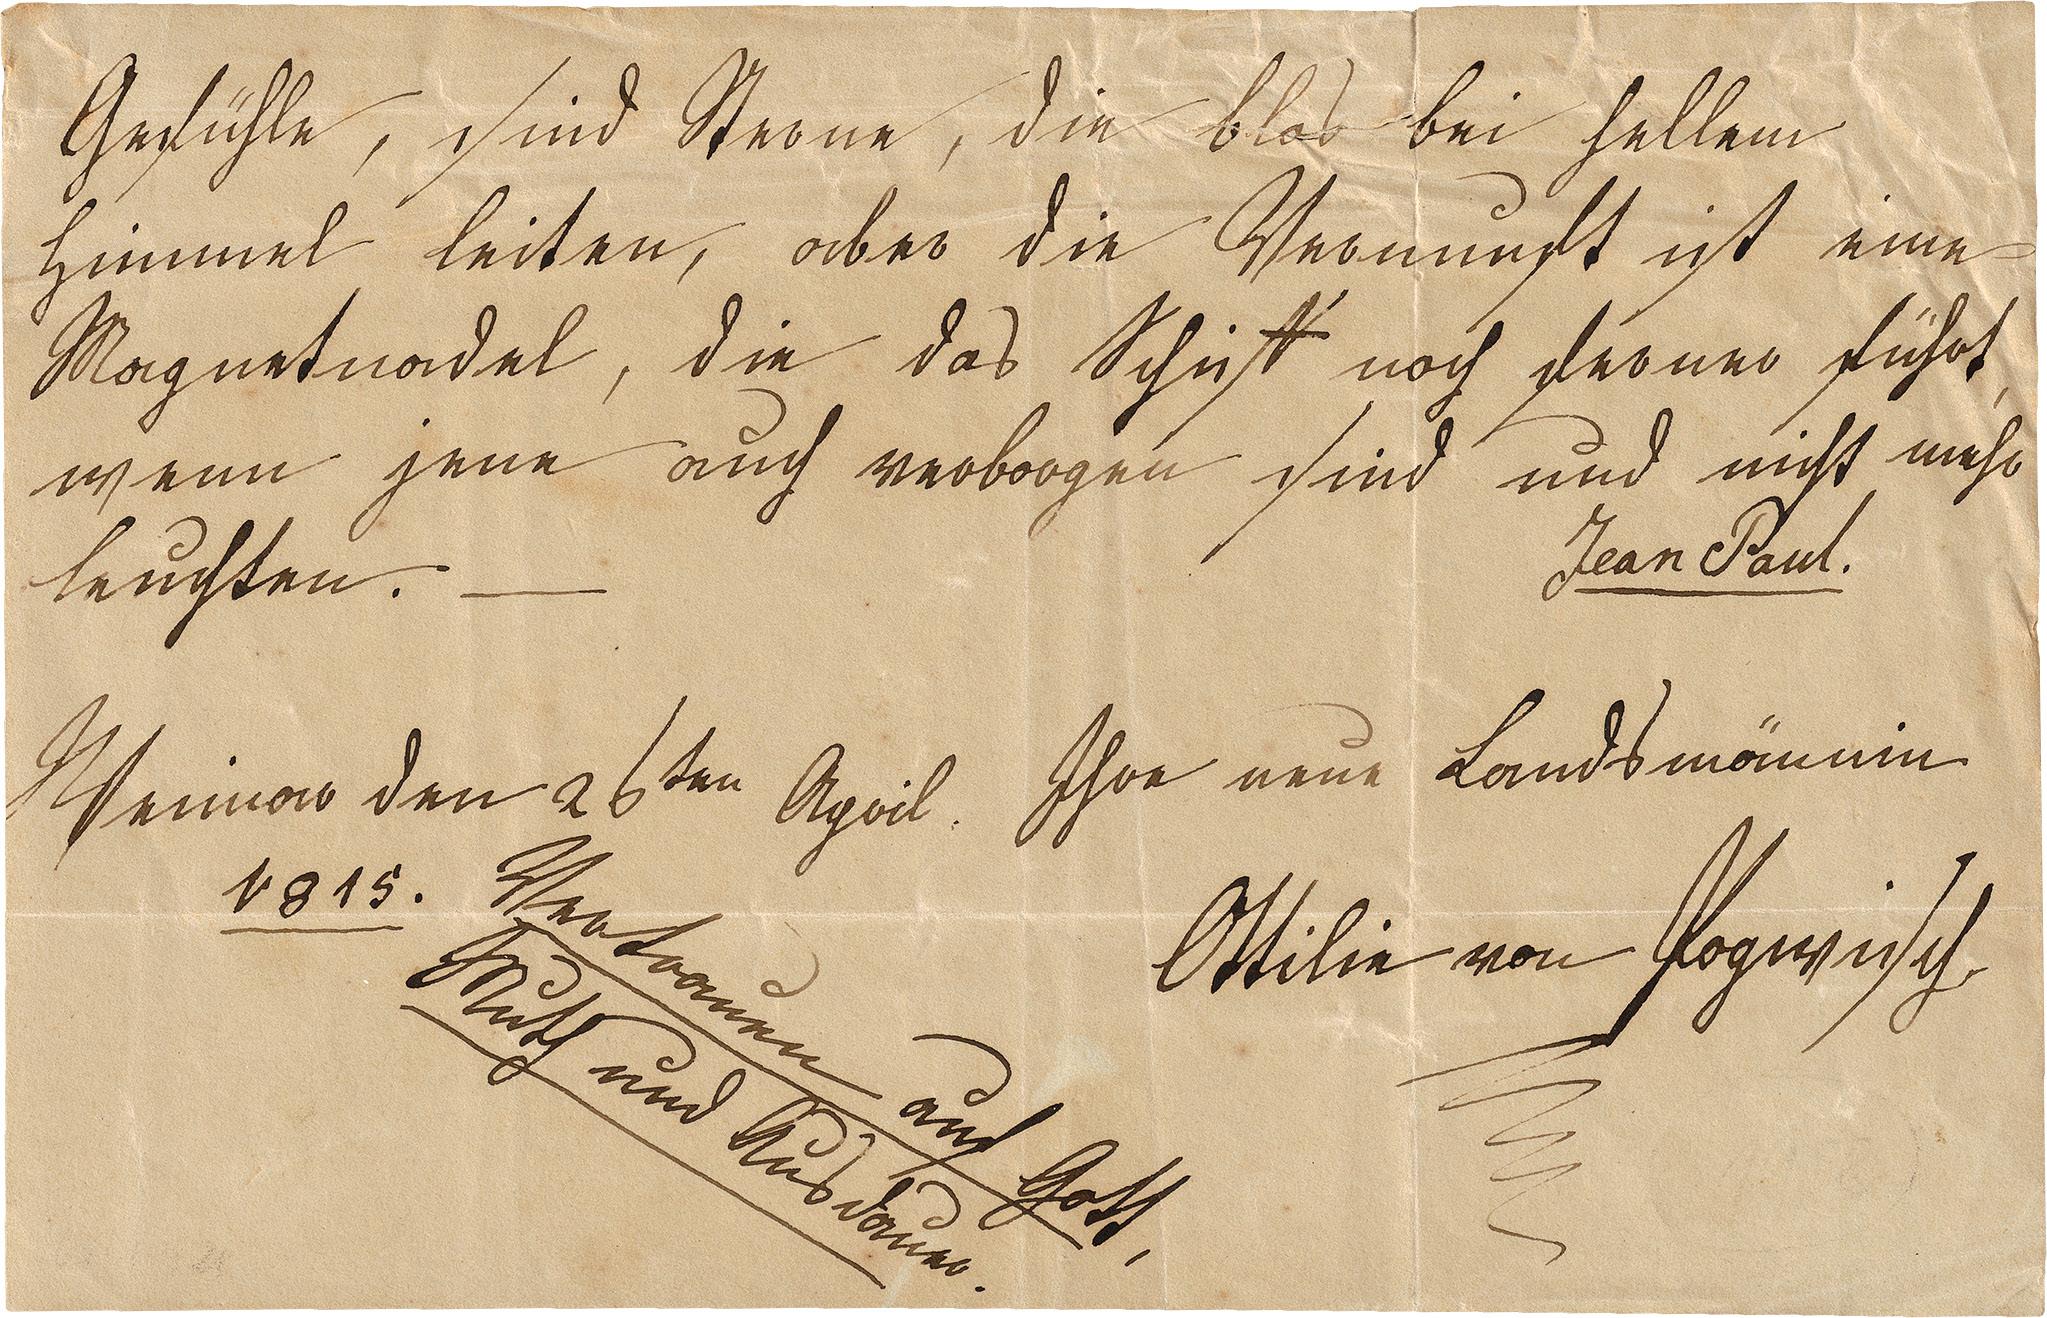 Gefühle, sind Sterne, die blos bei hellem
Himmel leiten, aber die Vernunft ist eine
Magnetnadel, die das Schiff noch ferner führt,
wenn jene auch verborgen sind und nicht mehr
leuchten. —
Jean Paul.
Weimar den 26sten April.
1815.
Ihre neue Landsmännin
Ottilie von Pogwisch
Vertrauen auf Gott,
Muth und Ausdauer.